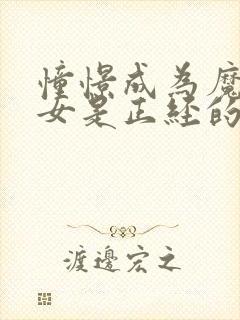 憧憬成為魔
女是正经的
渡邊宏之